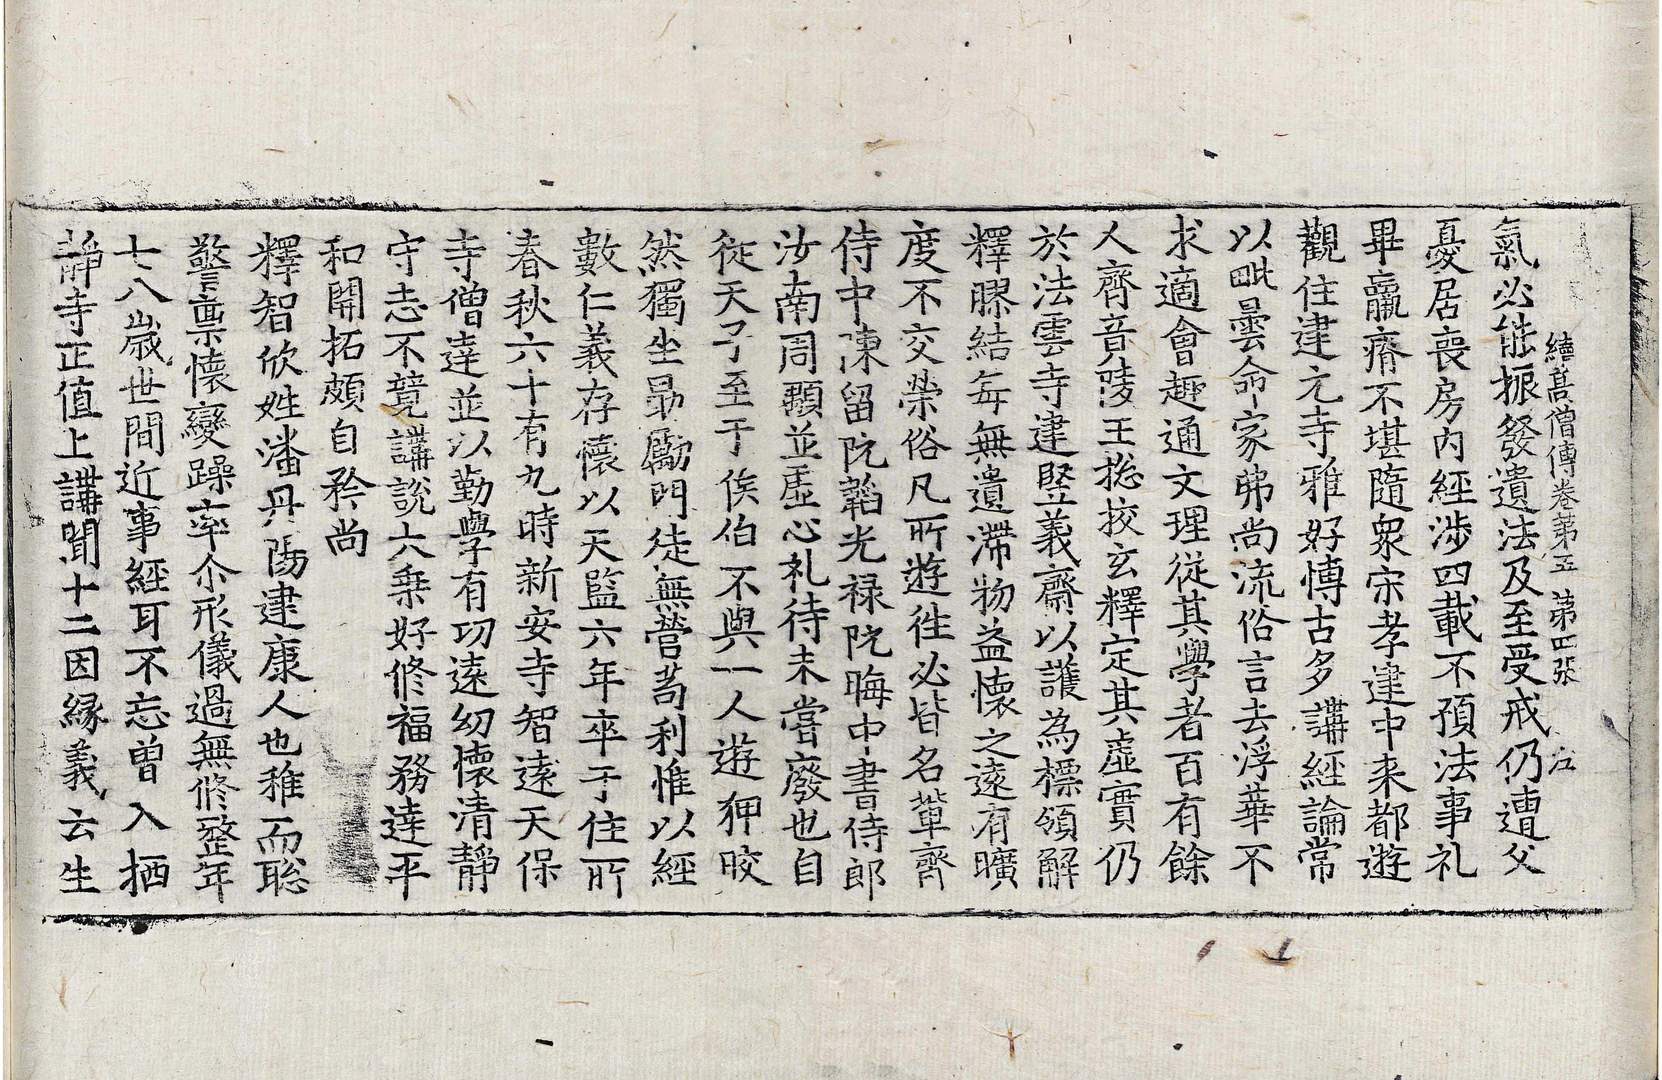 續髙僧傳卷苐五 苐四張 江
氣必能振發遺法及至受戒仍遭父
憂居喪房內經涉四載不預法事礼
畢羸瘠不堪隨衆宋孝建中来都遊
觀住建元寺雅好博古多講經論常
以毗曇命家弗尚流俗言去浮華不
求適會趣通文理従其學者百有餘
人齊音陵王揔挍玄釋定其虛實仍
於法雲寺建竪義齋以護為標領解
釋膠結每無遺滯物益懷之遠有曠
度不交榮俗凡所遊往必皆名輩齊
侍中陳留阮韜光禄阮晦中書侍郎
汝南周顒並虛心礼待未嘗廢也自
従天子至于侯伯不與一人遊狎晈
然獨坐勗勵門徒無營苟利惟以經
數仁義存懷以天監六年卒于住所
春秋六十有九時新安寺智遠天保
寺僧達並以勤學有功遠幼懷清靜
守志不競講說大乗好修福務達平
和開拓頗自矜尚
釋智欣姓潘丹陽建康人也稚而聡
警稟懷變躁率尒形儀過無修整年
七八歲世間近事經耳不忘曽入栖
靜寺正值上講聞十二因緣義云生